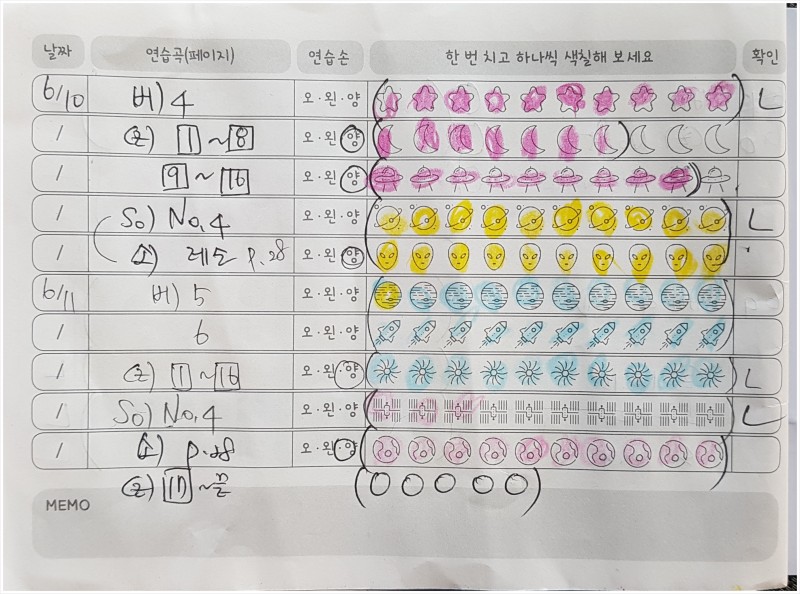 날짜 연습곡(페이지) 연습손 한 번 치고 하나씩 색칠해 보세요 확인
6/10 버) 4 오·왼·양
/ 1 ~ 8 오·왼·양
/ 9 ~ 16 오·왼·양
/ So) No.4 오·왼·양
/ 소) 레도 p.28 오·왼·양
6/11 버) 5 오·왼·양
/ 6 오·왼·양
/ 1 ~ 16 오·왼·양
/ So) No.4 오·왼·양
/ 소) p.28 오·왼·양
17 ~ 끝
MEMO